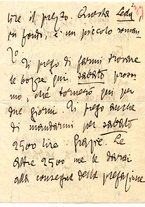 tore il prezzo. Questa Leda
in fondo è un piccolo roman
zo.
Ti prego di farmi trovare
le bozze qui sabato prossi
mo, che tornerò qui per
due giorni. Ti prego anche
di mandarmi per sabato
2500 lire. Grazie. Le
altre 2500 me le darai
alla consegna della prefazione